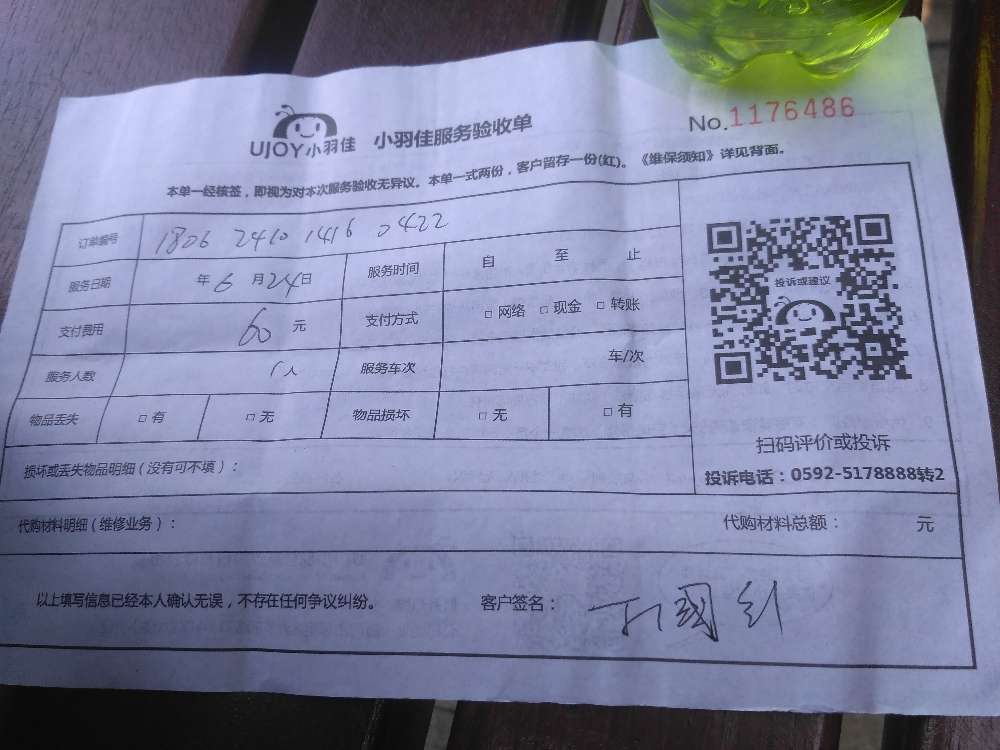 UJOY小羽佳 小羽佳服务验收单 No.1176486
本单一经核签，即视为对本次服务验收无异议。本单一式两份，客户留存一份(红)。《维保须知》详见背面。
订单编号 1806 2410 1416 0422
服务日期 年6月24日 服务时间 自 至 止
支付费用 60元 支付方式 □ 网络 □ 现金 □ 转账
服务人数 1人 服务车次 车/次
物品丢失 □ 有 □ 无 物品损坏 □ 无 □ 有
投诉或建议
扫码评价或投诉
投诉电话：0592-5178888转2
损坏或丢失物品明细（没有可不填）：
代购材料明细（维修业务）： 代购材料总额： 元
以上填写信息已经本人确认无误，不存在任何争议纠纷。 客户签名：